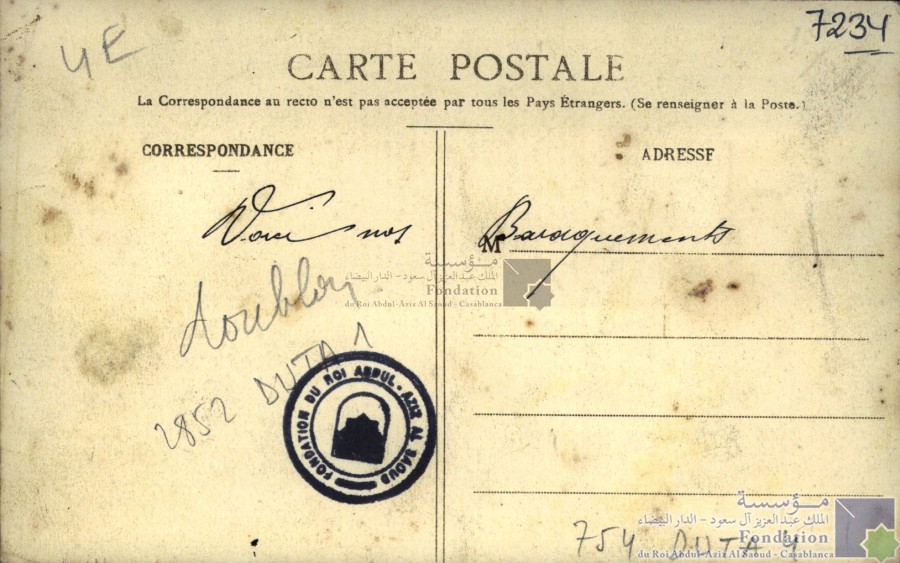 4E
7234
CARTE POSTALE
La Correspondance au recto n'est pas acceptée par tous les Pays Étrangers. (Se renseigner à la Poste.)
CORRESPONDANCE
ADRESSE
Voici nos Baraquements
M
مؤسسة
الملك عبد العزيز آل سعود - الدار البيضاء
Fondation
du Roi Abdul-Aziz Al Saoud - Casablanca
2852 DUTA 1
FONDATION DU ROI ABDUL-AZIZ AL SAOUD
754 DUTA 4
مؤسسة
الملك عبد العزيز آل سعود - الدار البيضاء
Fondation
du Roi Abdul-Aziz Al Saoud - Casablanca